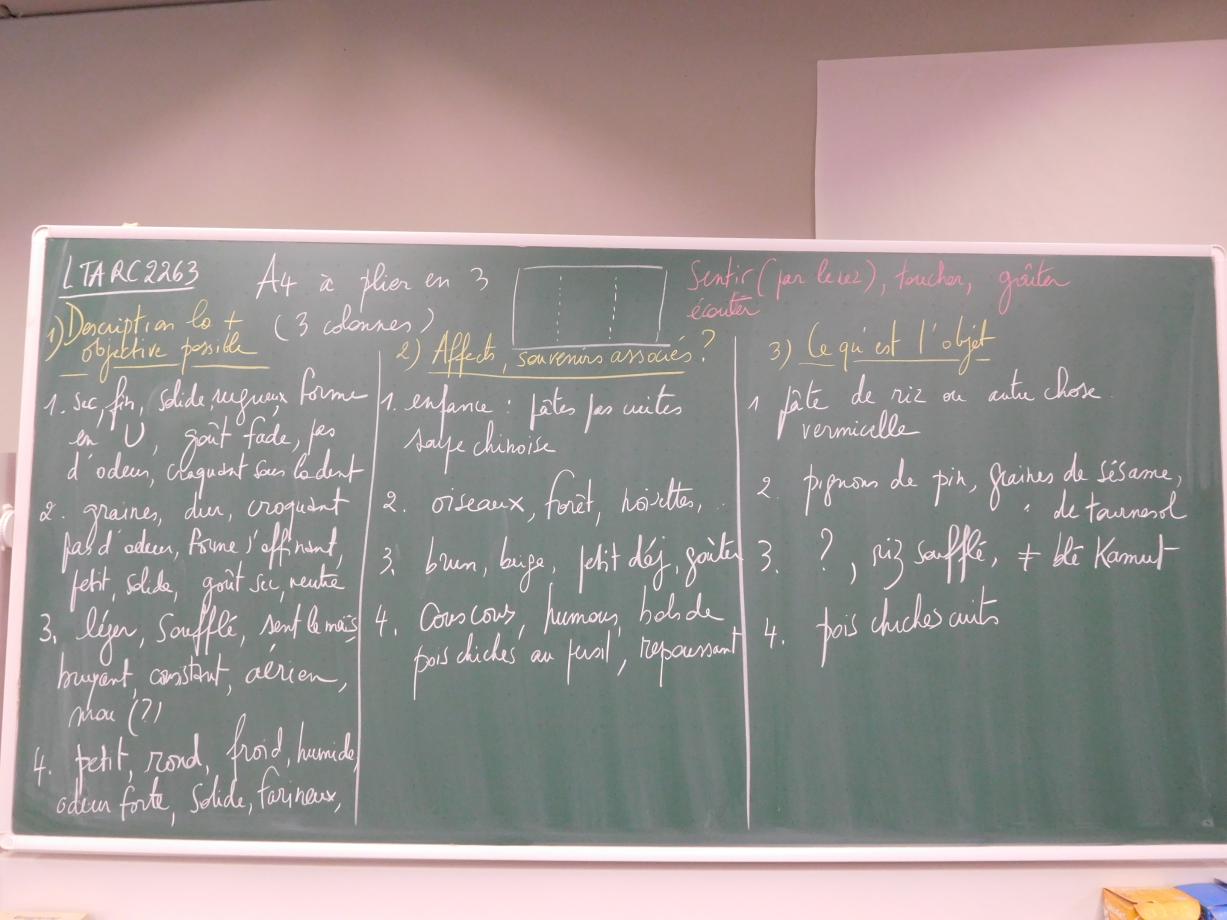 LTARC2263
A4 à plier en 3
(3 colonnes)
Sentir (par le nez), toucher, goûter
écouter
1) Description la +
objective possible
1. sec, fin, solide, rugueux, forme
en U, goût fade, pas
d'odeur, craquant sous la dent
2. graines, dur, croquant
pas d'odeur, forme s'affinant,
petit, solide, goût sec, neutre
3. léger, soufflé, sent le maïs
bruyant, consistant, aérien,
mou (?)
4. petit, rond, froid, humide,
odeur forte, solide, farineux,
2) Affects, souvenirs associés?
1. enfance : pâtes pas cuites
soupe chinoise
2. oiseaux, forêt, noisettes,
3. brun, beige, petit déj, goûter
4. Couscous, humous, bols de
pois chiches au persil, repoussant
3) Ce qu'est l'objet
1 pâte de riz ou autre chose
vermicelle
2. pignons de pin, graines de sésame,
" de tournesol
3. ?, riz soufflé, ≠ blé Kamut
4. pois chiches cuits